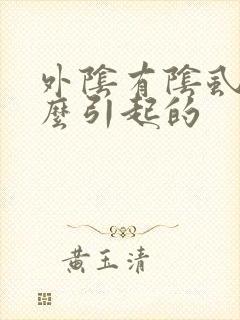 外陰有陰虱
麼引起的
黃玉清